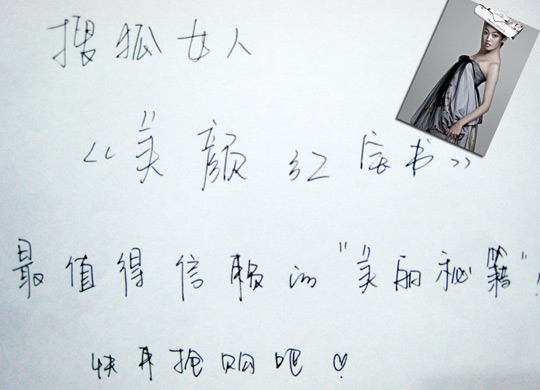 搜狐女人
《美颜红宝书》
最值得信赖的"美丽秘籍"!
快来抢购吧♡